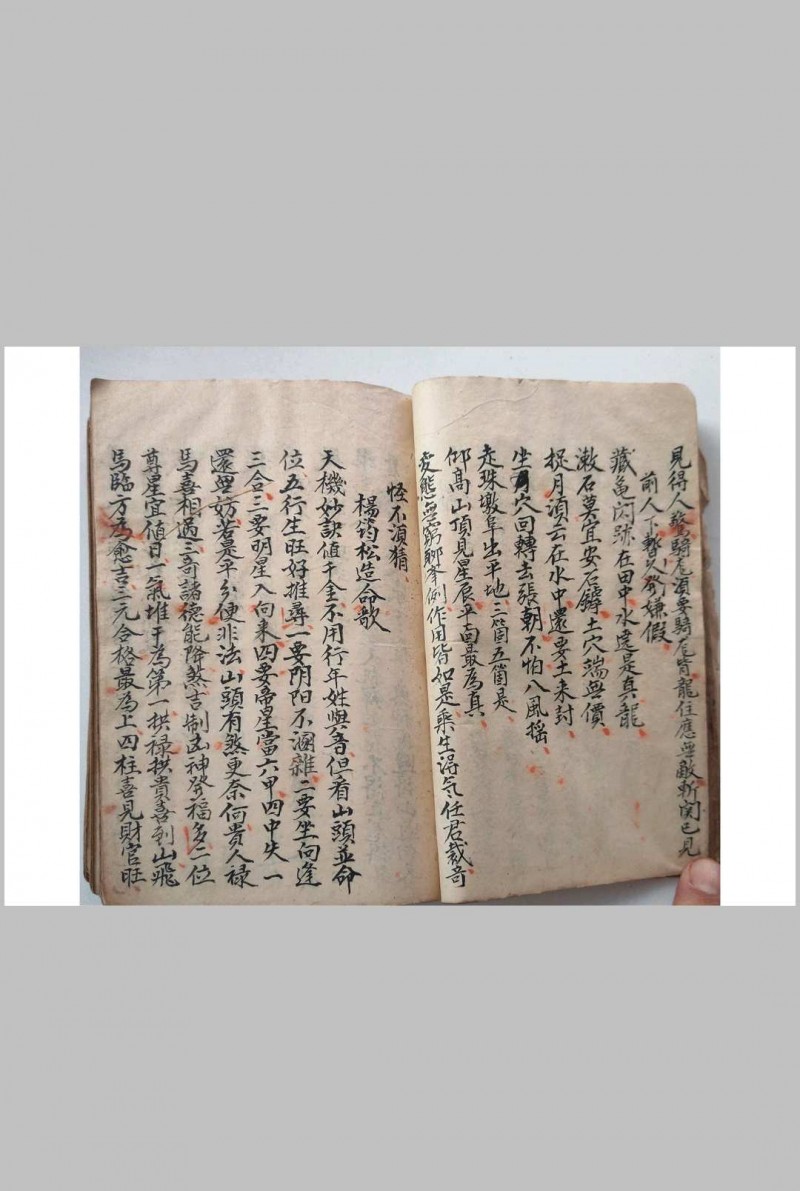 見得人驚騎龙須要騎龙背龍住應無敵斬関已見
前人下暫久發嫌假
藏龜閃跡在田中水遶是真龍
漱石莫宜安石罅土穴端無價
捉月須云在水中還要土来封
坐穴回轉去張朝不怕八風摇
走珠墩阜出平地三箇五箇是
仰高山頂見星辰平面最為真
变態無窮聊举例作用皆如是乘生淂气任君裁奇
怪不須猜
楊筠松造命歌
天機妙訣值千金不用行年姓與音但看山頭並命
位五行生旺好推尋一要阴阳不溷雜二要坐向逢
三合三要明星入向来四要帝星當六甲四中失一
還無妨若是平分便非法山頭有煞更奈何貴人禄
馬喜相遇三奇諸德能降煞吉制凶神發福多二位
尊星宜值日一氣堆干為第一拱禄拱貴喜到山飛
馬臨方為愈吉三元合格最為上四柱喜見財官旺